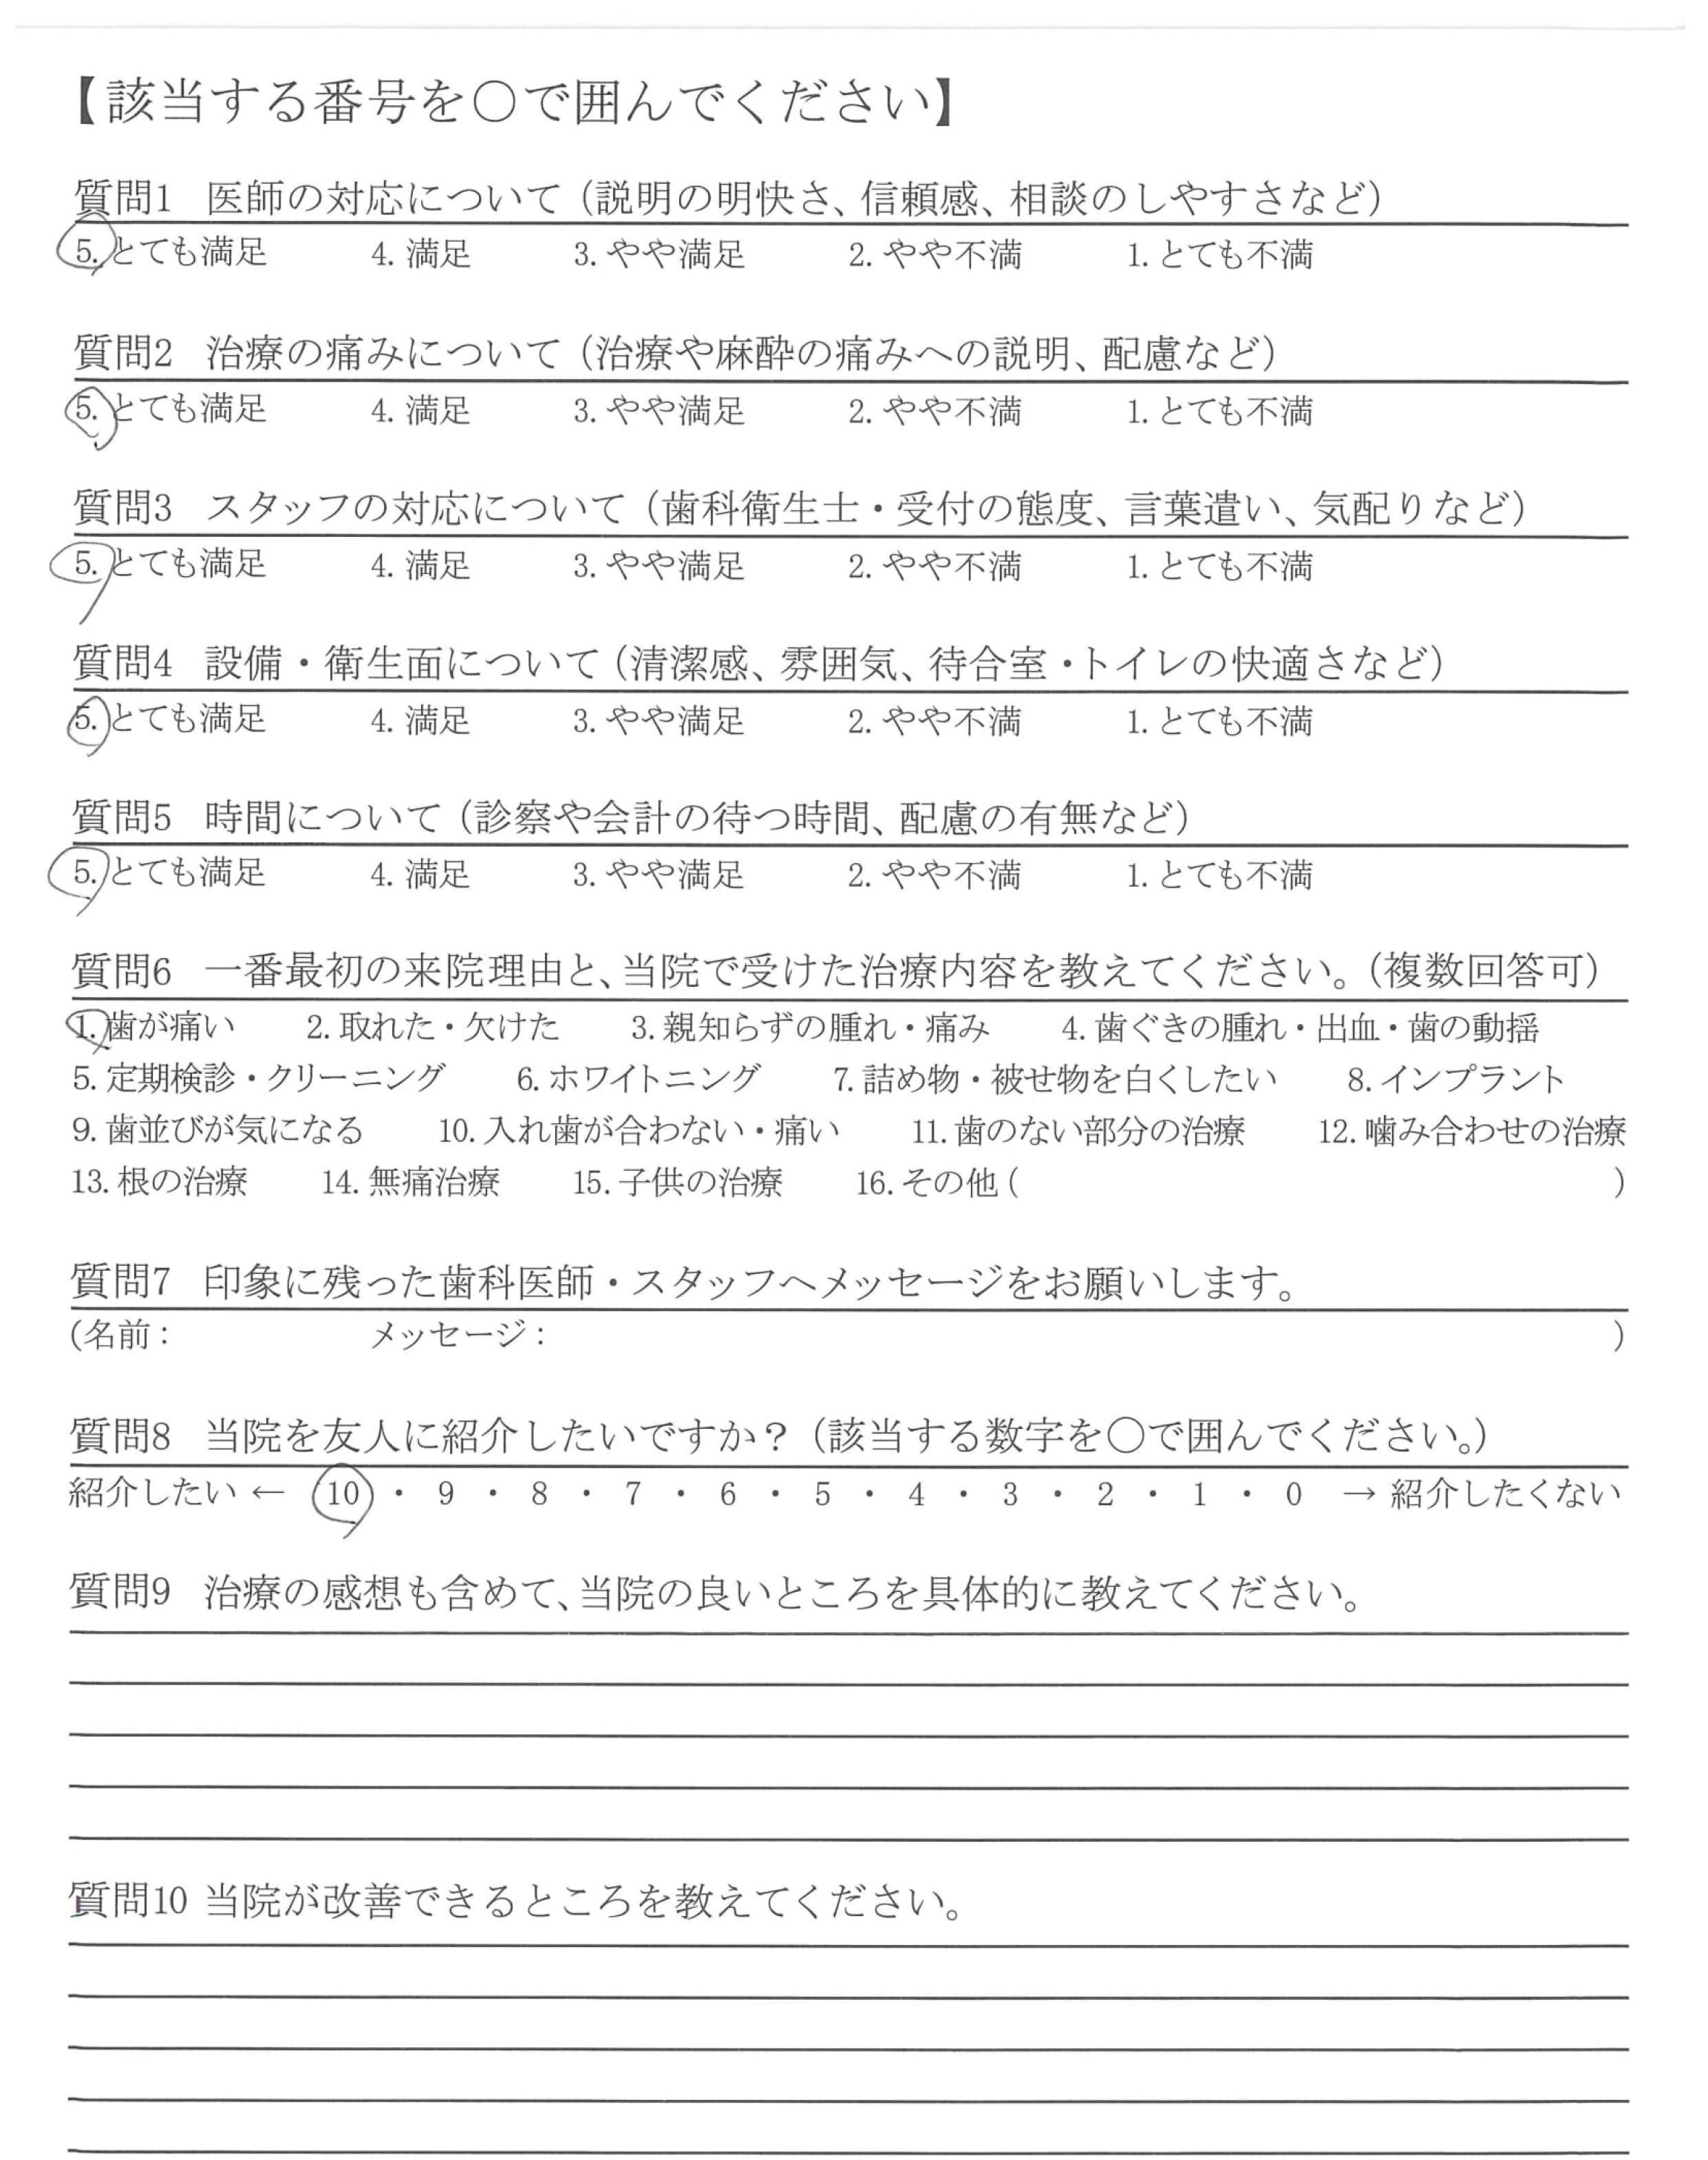 【該当する番号を〇で囲んでください】
質問1 医師の対応について（説明の明快さ、信頼感、相談のしやすさなど）
5. とても満足 4. 満足 3. やや満足 2. やや不満 1. とても不満
質問2 治療の痛みについて（治療や麻酔の痛みへの説明、配慮など）
5. とても満足 4. 満足 3. やや満足 2. やや不満 1. とても不満
質問3 スタッフの対応について（歯科衛生士・受付の態度、言葉遣い、気配りなど）
5. とても満足 4. 満足 3. やや満足 2. やや不満 1. とても不満
質問4 設備・衛生面について（清潔感、雰囲気、待合室・トイレの快適さなど）
5. とても満足 4. 満足 3. やや満足 2. やや不満 1. とても不満
質問5 時間について（診察や会計の待つ時間、配慮の有無など）
5. とても満足 4. 満足 3. やや満足 2. やや不満 1. とても不満
質問6 一番最初の来院理由と、当院で受けた治療内容を教えてください。（複数回答可）
1. 歯が痛い 2. 取れた・欠けた 3. 親知らずの腫れ・痛み 4. 歯ぐきの腫れ・出血・歯の動揺
5. 定期検診・クリーニング 6. ホワイトニング 7. 詰め物・被せ物を白くしたい 8. インプラント
9. 歯並びが気になる 10. 入れ歯が合わない・痛い 11. 歯のない部分の治療 12. 噛み合わせの治療
13. 根の治療 14. 無痛治療 15. 子供の治療 16. その他 ( )
質問7 印象に残った歯科医師・スタッフへメッセージをお願いします。
(名前： メッセージ： )
質問8 当院を友人に紹介したいですか？（該当する数字を〇で囲んでください。）
紹介したい ← 10 ・ 9 ・ 8 ・ 7 ・ 6 ・ 5 ・ 4 ・ 3 ・ 2 ・ 1 ・ 0 → 紹介したくない
質問9 治療の感想も含めて、当院の良いところを具体的に教えてください。
質問10 当院が改善できるところを教えてください。